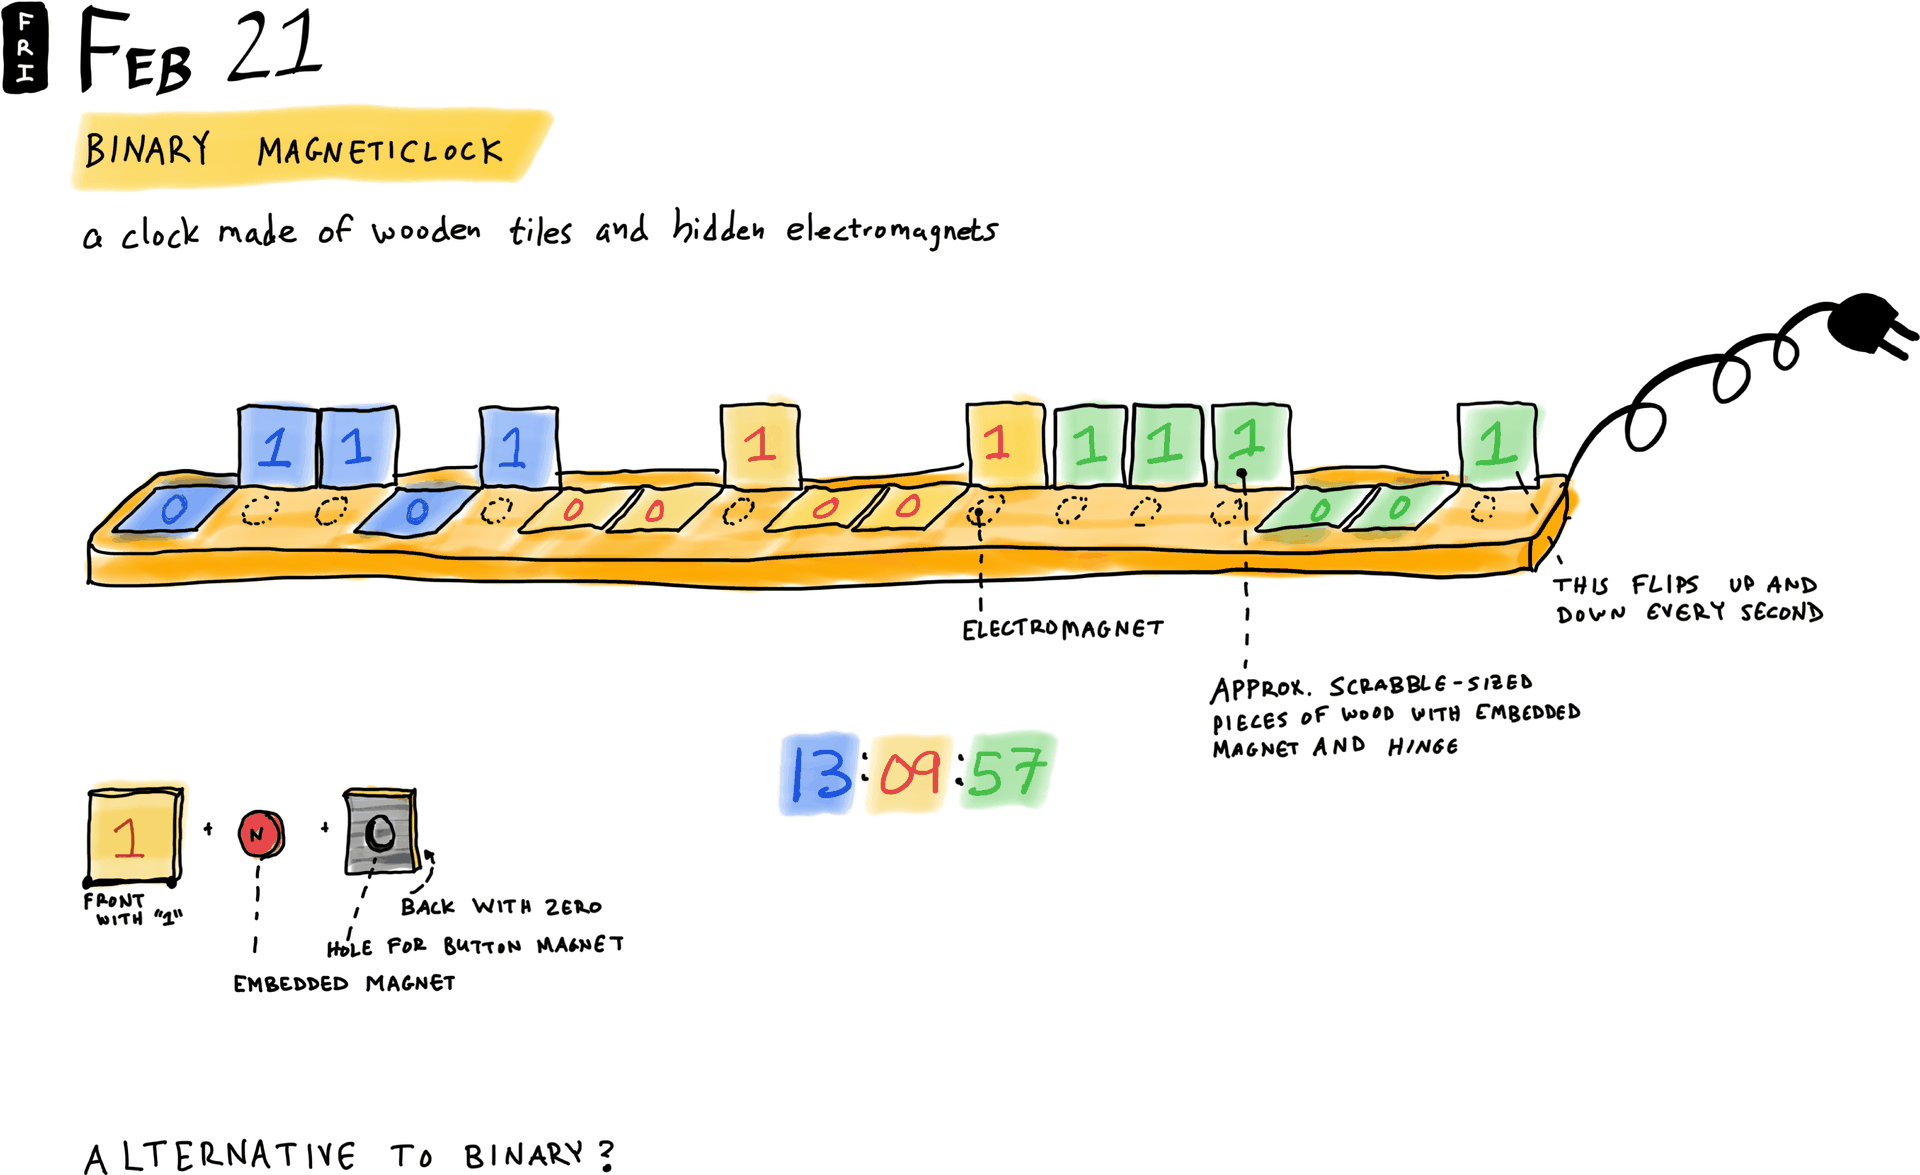 FRI
FEB 21
BINARY MAGNETICLOCK
a clock made of wooden tiles and hidden electromagnets
1 1 1 1 1 1 1 1 1
0 0 0 0 0 0 0 0
ELECTROMAGNET
THIS FLIPS UP AND
DOWN EVERY SECOND
APPROX. SCRABBLE-SIZED
PIECES OF WOOD WITH EMBEDDED
MAGNET AND HINGE
13:09:57
1 + N + 0
FRONT
WITH "1"
BACK WITH ZERO
HOLE FOR BUTTON MAGNET
EMBEDDED MAGNET
ALTERNATIVE TO BINARY?